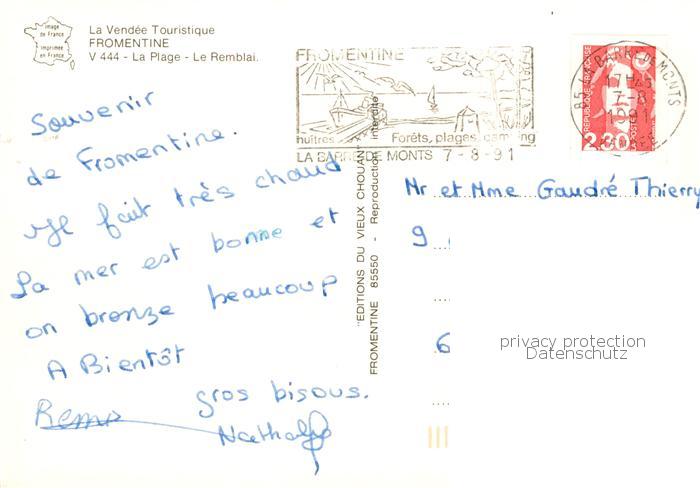 image
de France
imprimée
en France
La Vendée Touristique
FROMENTINE
V 444 - La Plage - Le Remblai.
FROMENTINE
huîtres
Forêts, plages, camping
LA BARRE DE MONTS 7-8-91
85 LA BARRE DE MONTS
17H45
7-8
1991
VENDÉE
RÉPUBLIQUE FRANÇAISE
2,30
LA POSTE
Souvenir
de Fromentine.
Il fait très chaud
La mer est bonne et
on bronze beaucoup
A Bientôt
gros bisous.
Remy
Nathaly
"EDITIONS DU VIEUX CHOUAN"
FROMENTINE 85550 - Reproduction interdite
Mr et Mme Gaudré Thierry
9
6
privacy protection
Datenschutz